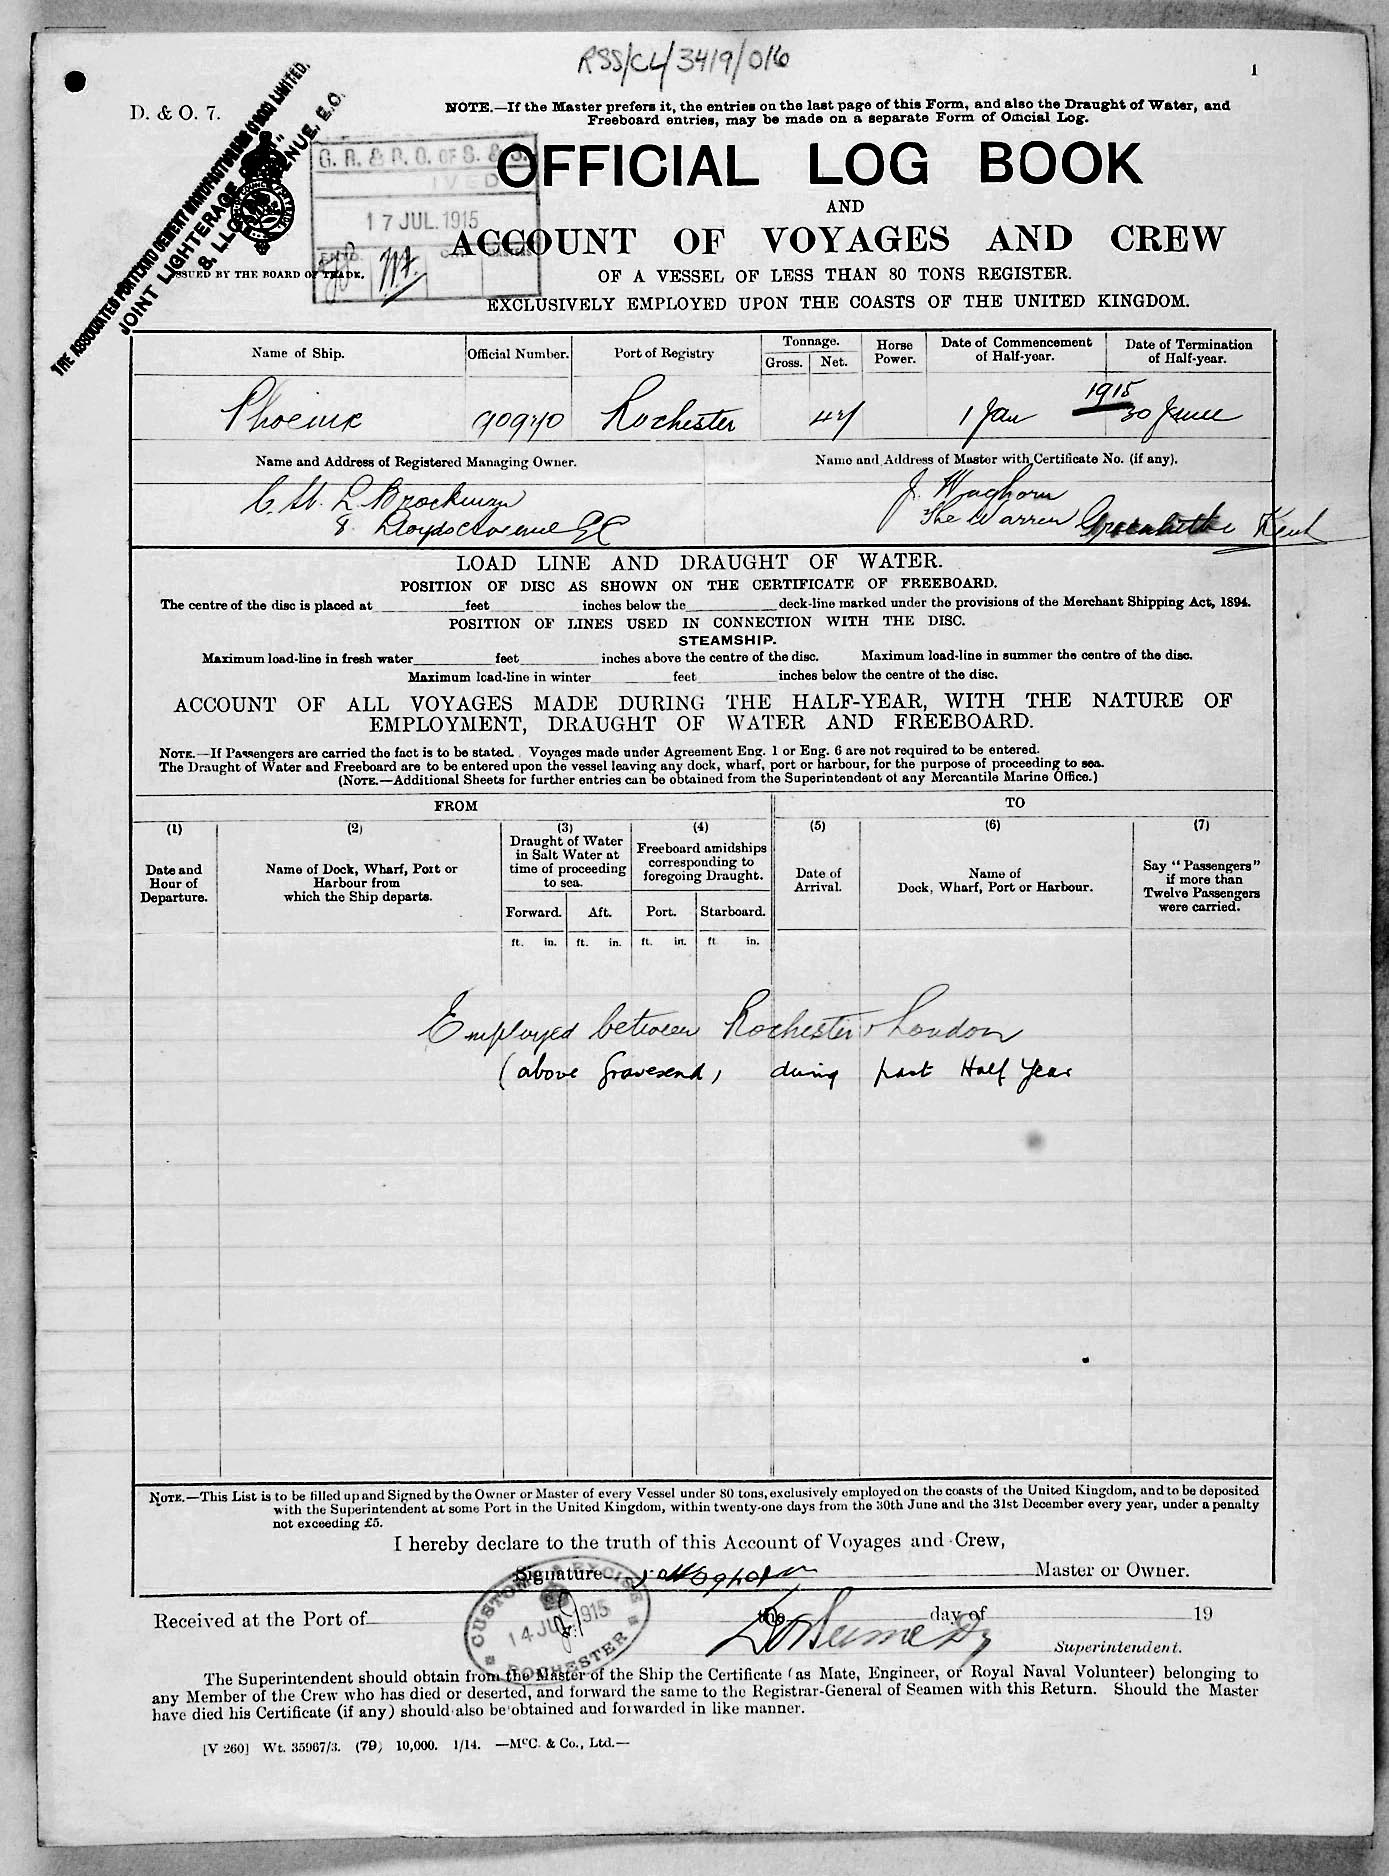 RSS/CL/3419/016
1
D. & O. 7.
NOTE.—If the Master prefers it, the entries on the last page of this Form, and also the Draught of Water, and
Freeboard entries, may be made on a separate Form of Official Log.
THE ASSOCIATED PORTLAND CEMENT MANUFACTURERS (1900) LIMITED,
JOINT LIGHTERAGE
8, LLOYDS AVENUE, E.C.
G. R. & R. O. OF S. & S.
IVED
17 JUL. 1915
OFFICIAL LOG BOOK
AND
ACCOUNT OF VOYAGES AND CREW
ISSUED BY THE BOARD OF TRADE.
OF A VESSEL OF LESS THAN 80 TONS REGISTER.
EXCLUSIVELY EMPLOYED UPON THE COASTS OF THE UNITED KINGDOM.
Name of Ship. Official Number. Port of Registry Tonnage. Gross. Net. Horse Power. Date of Commencement of Half-year. Date of Termination of Half-year.
1915
Phoenix Rochester 1 Jan 30 June
Name and Address of Registered Managing Owner. Name and Address of Master with Certificate No. (if any).
Brockman J. Waghorn
8 Lloyds Avenue EC The Warren Greenhithe Kent
LOAD LINE AND DRAUGHT OF WATER.
POSITION OF DISC AS SHOWN ON THE CERTIFICATE OF FREEBOARD.
The centre of the disc is placed at feet inches below the deck-line marked under the provisions of the Merchant Shipping Act, 1894.
POSITION OF LINES USED IN CONNECTION WITH THE DISC.
STEAMSHIP.
Maximum load-line in fresh water feet inches above the centre of the disc. Maximum load-line in summer the centre of the disc.
Maximum load-line in winter feet inches below the centre of the disc.
ACCOUNT OF ALL VOYAGES MADE DURING THE HALF-YEAR, WITH THE NATURE OF
EMPLOYMENT, DRAUGHT OF WATER AND FREEBOARD.
NOTE.—If Passengers are carried the fact is to be stated. Voyages made under Agreement Eng. 1 or Eng. 6 are not required to be entered.
The Draught of Water and Freeboard are to be entered upon the vessel leaving any dock, wharf, port or harbour, for the purpose of proceeding to sea.
(NOTE.—Additional Sheets for further entries can be obtained from the Superintendent of any Mercantile Marine Office.)
FROM TO
(1) (2) (3) (4) (5) (6) (7)
Date and Hour of Departure.
Name of Dock, Wharf, Port or Harbour from which the Ship departs.
Draught of Water in Salt Water at time of proceeding to sea.
Freeboard amidships corresponding to foregoing Draught.
Date of Arrival.
Name of Dock, Wharf, Port or Harbour.
Say "Passengers" if more than Twelve Passengers were carried.
Forward. Aft. Port. Starboard.
ft. in. ft. in. ft. in. ft in.
Employed between Rochester & London
(above Gravesend) during past Half Year
NOTE.—This List is to be filled up and Signed by the Owner or Master of every Vessel under 80 tons, exclusively employed on the coasts of the United Kingdom, and to be deposited
with the Superintendent at some Port in the United Kingdom, within twenty-one days from the 30th June and the 31st December every year, under a penalty
not exceeding £5.
I hereby declare to the truth of this Account of Voyages and Crew,
Signature J. Waghorn Master or Owner.
CUSTOMS & EXCISE
14 JUL 1915
ROCHESTER
Received at the Port of the day of 19
Superintendent.
The Superintendent should obtain from the Master of the Ship the Certificate (as Mate, Engineer, or Royal Naval Volunteer) belonging to
any Member of the Crew who has died or deserted, and forward the same to the Registrar-General of Seamen with this Return. Should the Master
have died his Certificate (if any) should also be obtained and forwarded in like manner.
[V 260] Wt. 35967/3. (79) 10,000. 1/14. —McC. & Co., Ltd.—